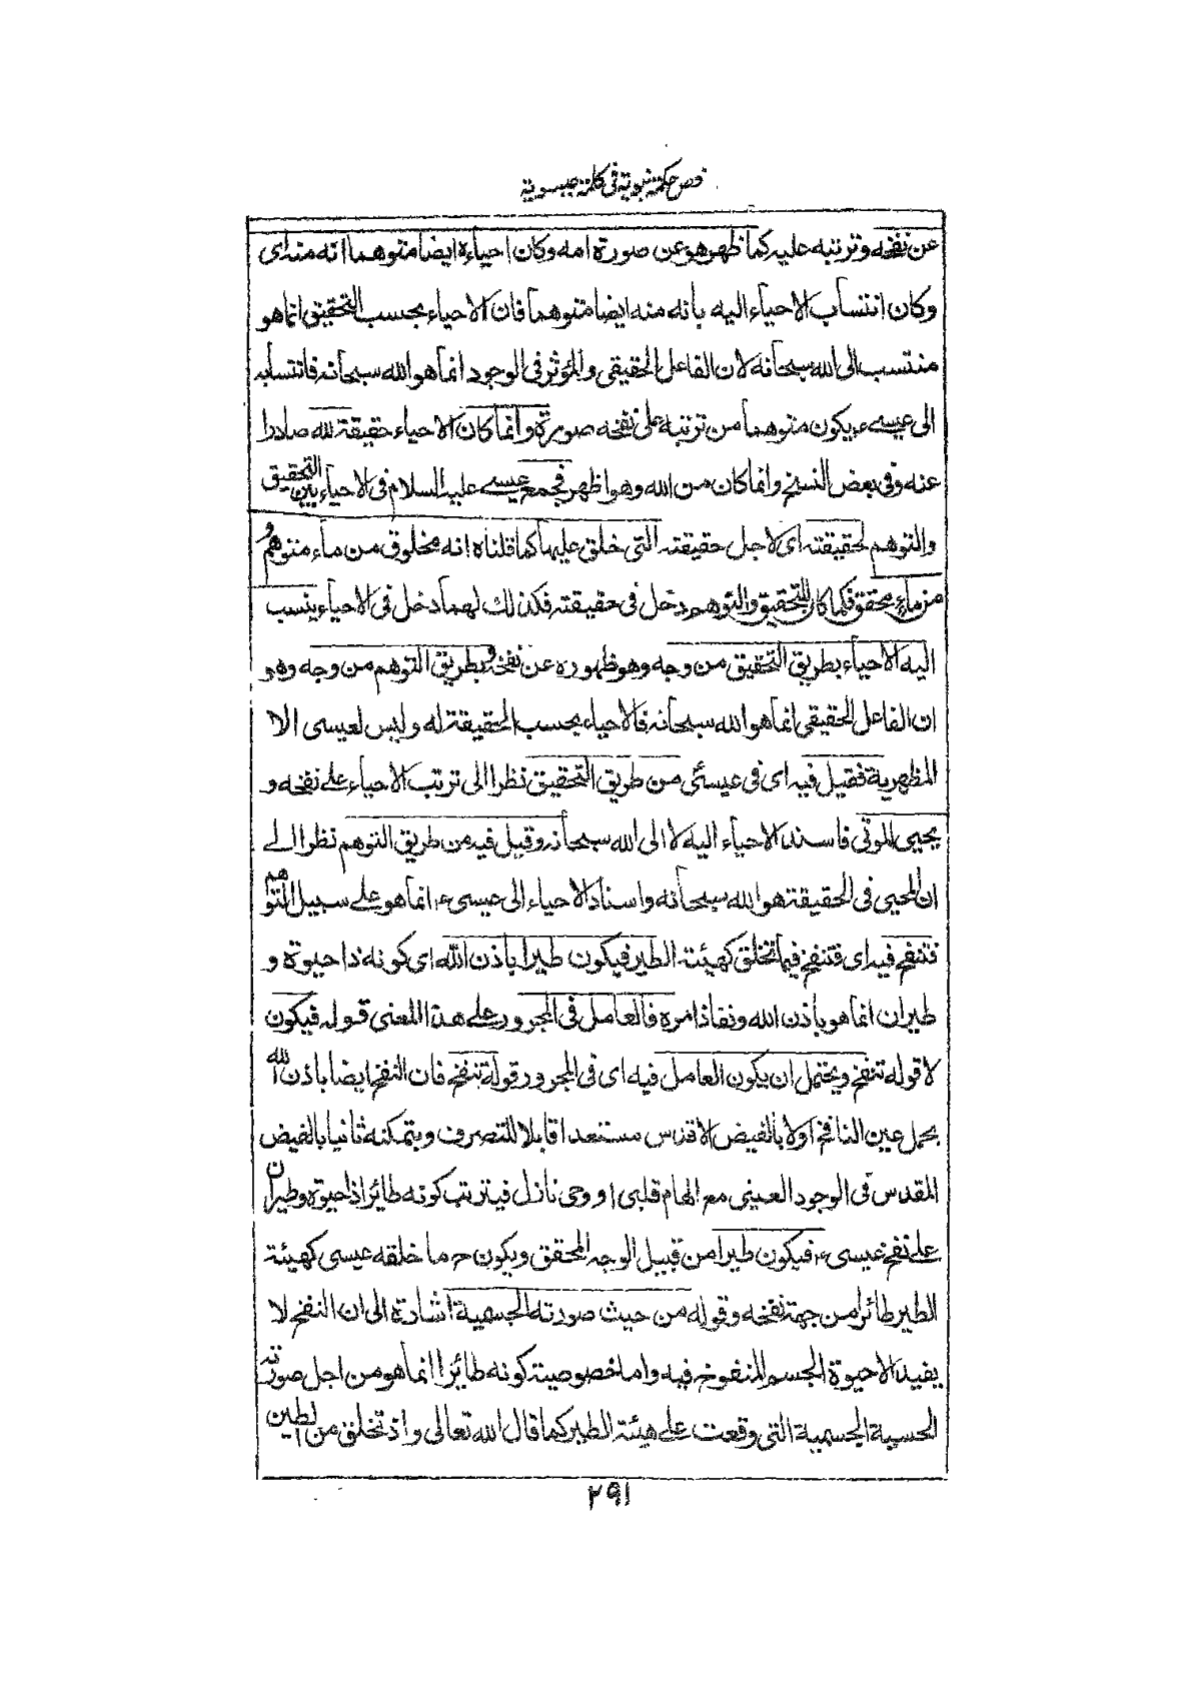 فص حكمة نبوية في كلمة عيسوية
عن نفخه وترتبه عليه كما ظهر هو عن صورة امه وكان احياءه ايضا متوهما انه منه اى
وكان انتساب الاحياء اليه بانه منه ايضا متوهما فان الاحياء بحسب التحقيق انما هو
منتسب الى الله سبحانه لان الفاعل الحقيقى والمؤثر فى الوجود انما هو الله سبحانه فانتسابه
الى عيسے ء يكون متوهما من ترتبه على نفخه صورة وانما كان الاحياء حقيقة لله صادرا
عنه وفى بعض النسخ وانما كان من الله وهو اظهر فجمع عيسے عليه السلام فى الاحياء بين التحقيق
والتوهم لحقيقته اى لاجل حقيقته التى خلق عليها كما قلناه انه مخلوق من ماء متوهم و
من ماء محقق فكما كان للتحقيق والتوهم دخل فى حقيقته فكذلك لهما دخل فى الاحياء ينسب
اليه الاحياء بطريق التحقيق من وجه وهو ظهوره عن نفخه وبطريق التوهم من وجه وهو
ان الفاعل الحقيقى انما هو الله سبحانه فالاحياء بحسب الحقيقة له وليس لعيسى الا
المظهرية فقيل فيه اى فى عيسى من طريق التحقيق نظرا الى ترتب الاحياء على نفخه و
يحيى الموتى فاسند الاحياء اليه لا الى الله سبحانه وقيل فيه من طريق التوهم نظرا الے
ان المحيى فى الحقيقة هو الله سبحانه واسناد الاحياء الى عيسى ء انما هو على سبيل التوهم
فتنفخ فيه اى فتنفخ فيما تخلق كهيئة الطير فيكون طيرا باذن الله اى كونه ذا حيوة و
طيران انما هو باذن الله ونفاذ امره فالعامل فى المجرور على هذا المعنى قوله فيكون
لا قوله تنفخ ويحتمل ان يكون العامل فيه اى فى المجرور قوله تنفخ فان النفخ ايضا باذن الله
بجعل عين النافخ اولا بالفيض الاقدس مستعدا قابلا للتصرف وبتمكنه ثانيا بالفيض
المقدس فى الوجود العينى مع الهام قلبى او وحى نازل فيترتب كونه طائرا ذا حيوة وطيران
على نفخ عيسى ء فيكون طيرا من قبيل الوجه المحقق ويكون ح ما خلقه عيسى كهيئة
الطير طائرا من جهة نفخه وقوله من حيث صورته الجسمية اشارة الى ان النفخ لا
يفيد الا حيوة الجسم المنفوخ فيه واما خصوصية كونه طائرا انما هو من اجل صورته
الحسية الجسمية التى وقعت على هيئة الطير كما قال الله تعالى واذ تخلق من الطين
٢٩١